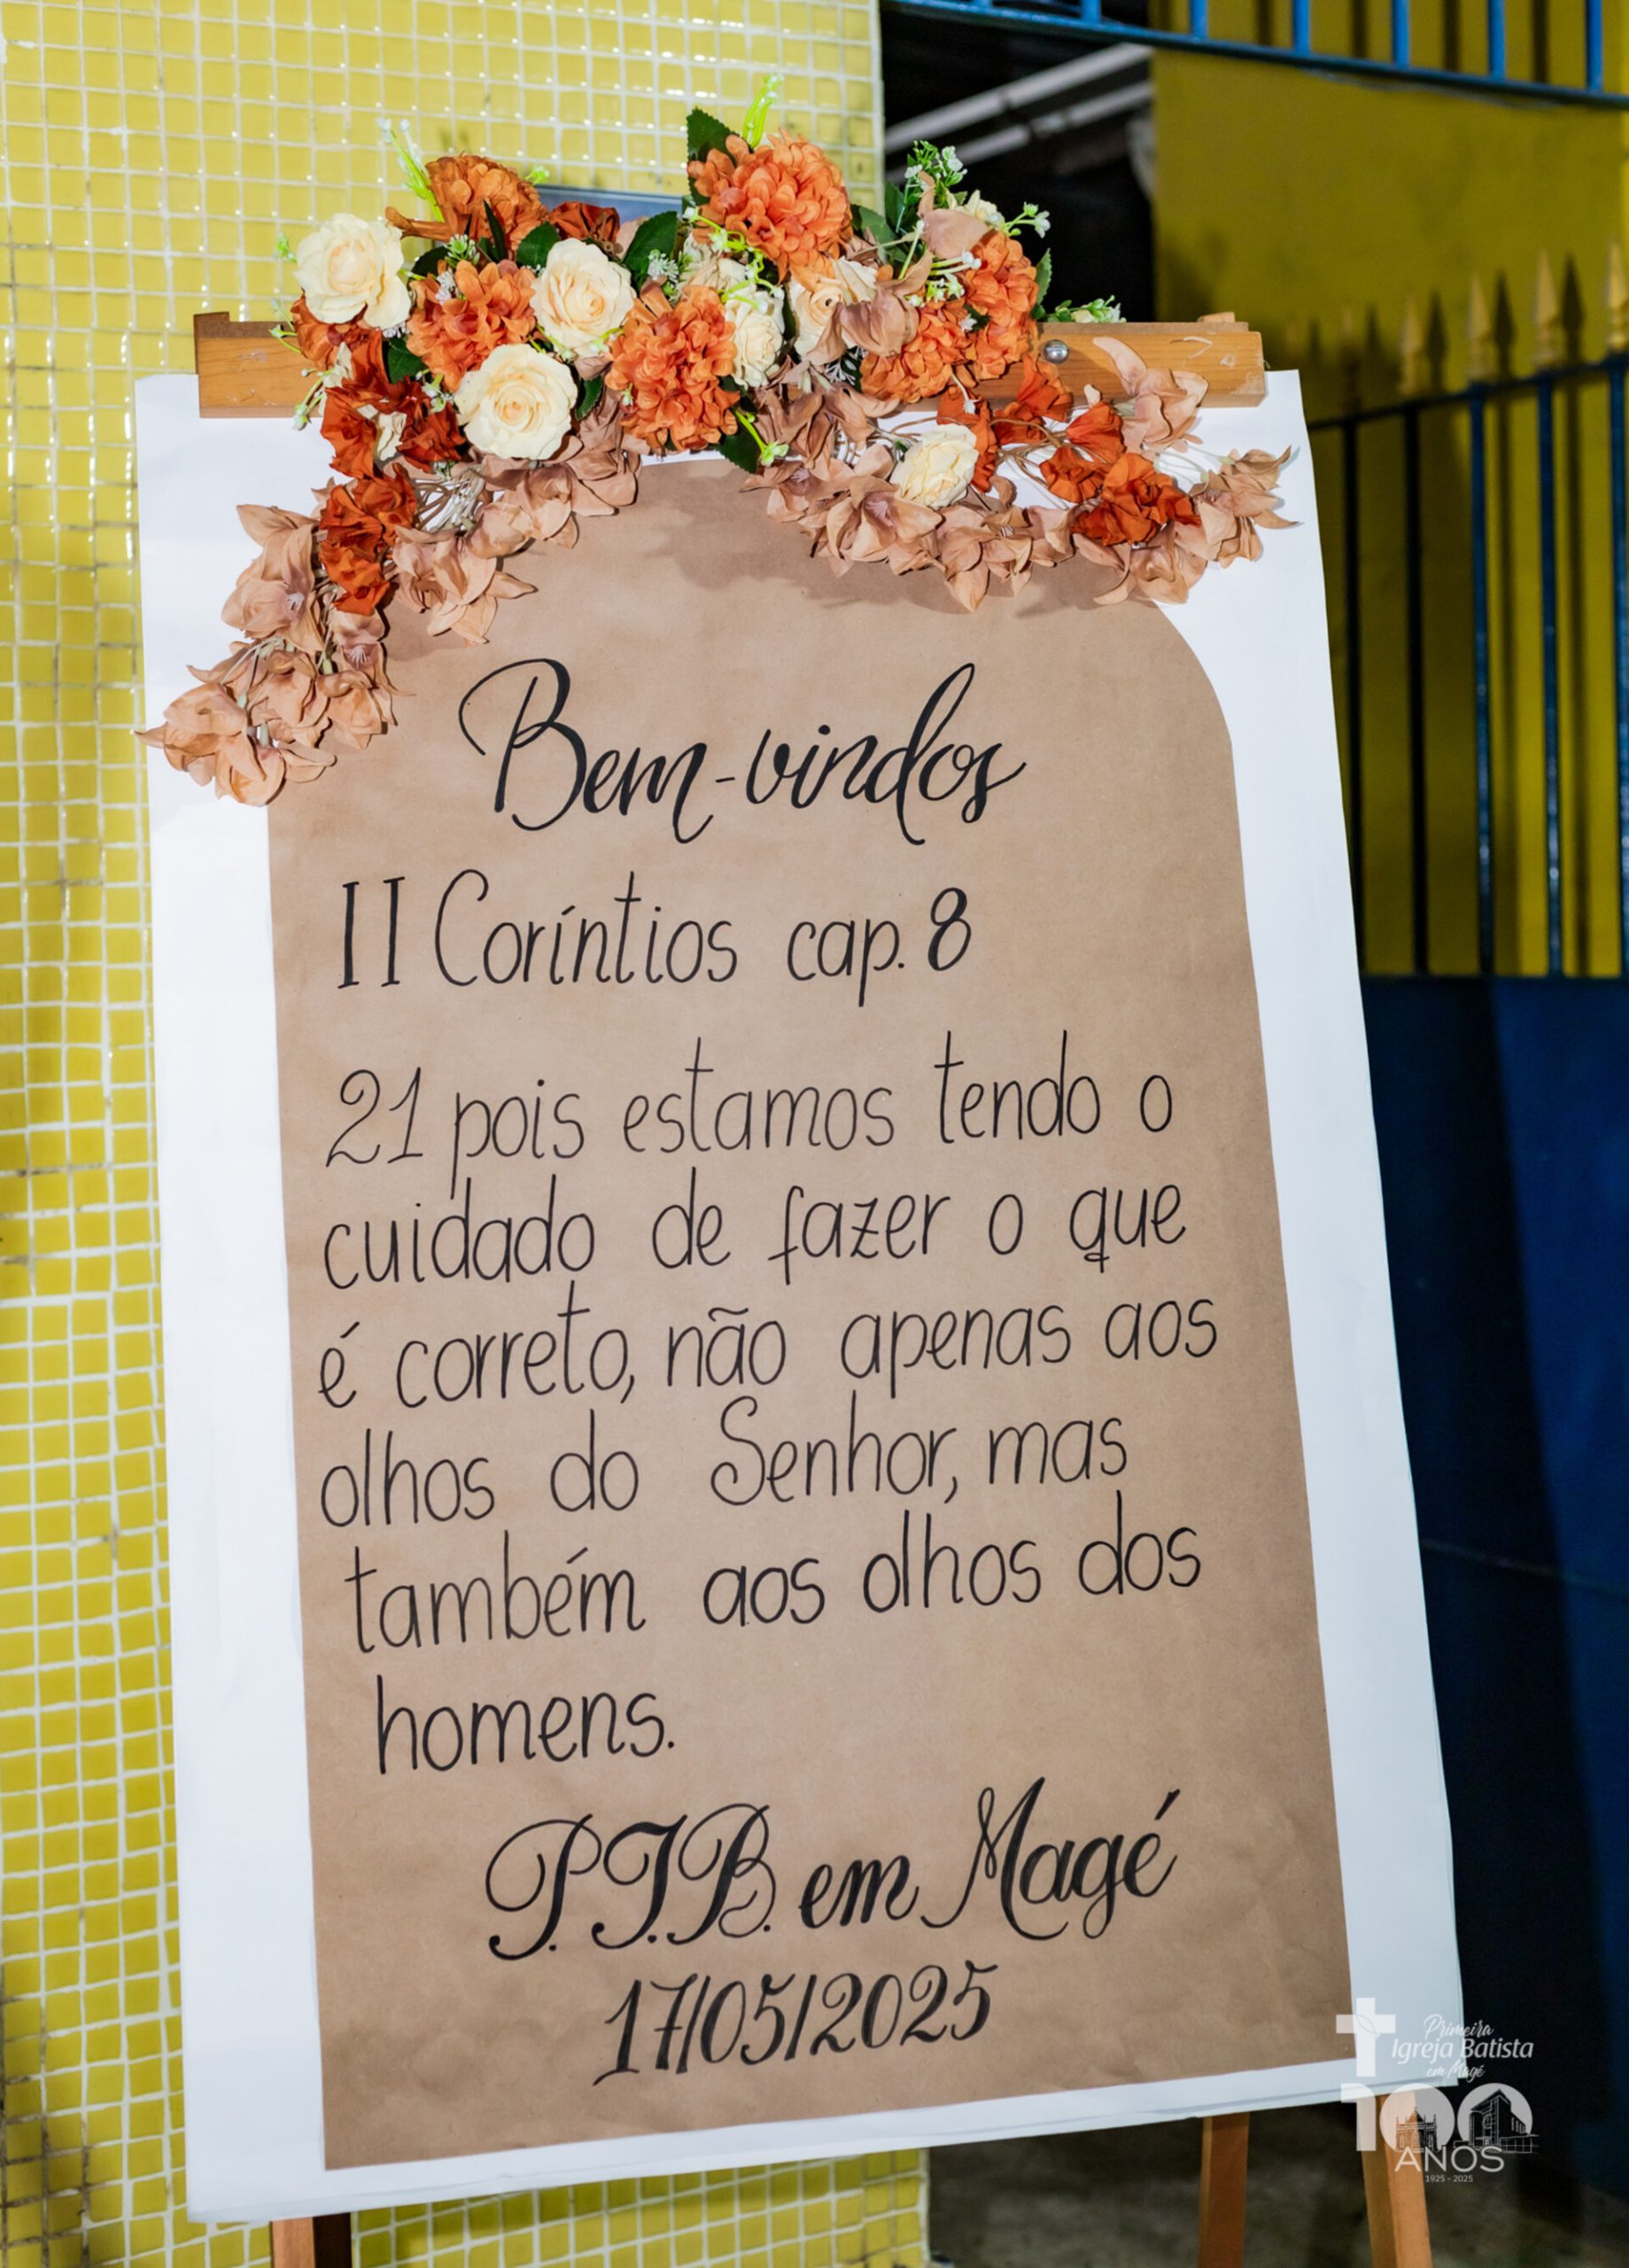 Bem-vindos
II Coríntios cap. 8
21 pois estamos tendo o
cuidado de fazer o que
é correto, não apenas aos
olhos do Senhor, mas
também aos olhos dos
homens.
P.I.B. em Magé
17/05/2025
Primeira
Igreja Batista
em Magé
100
ANOS
1925 - 2025